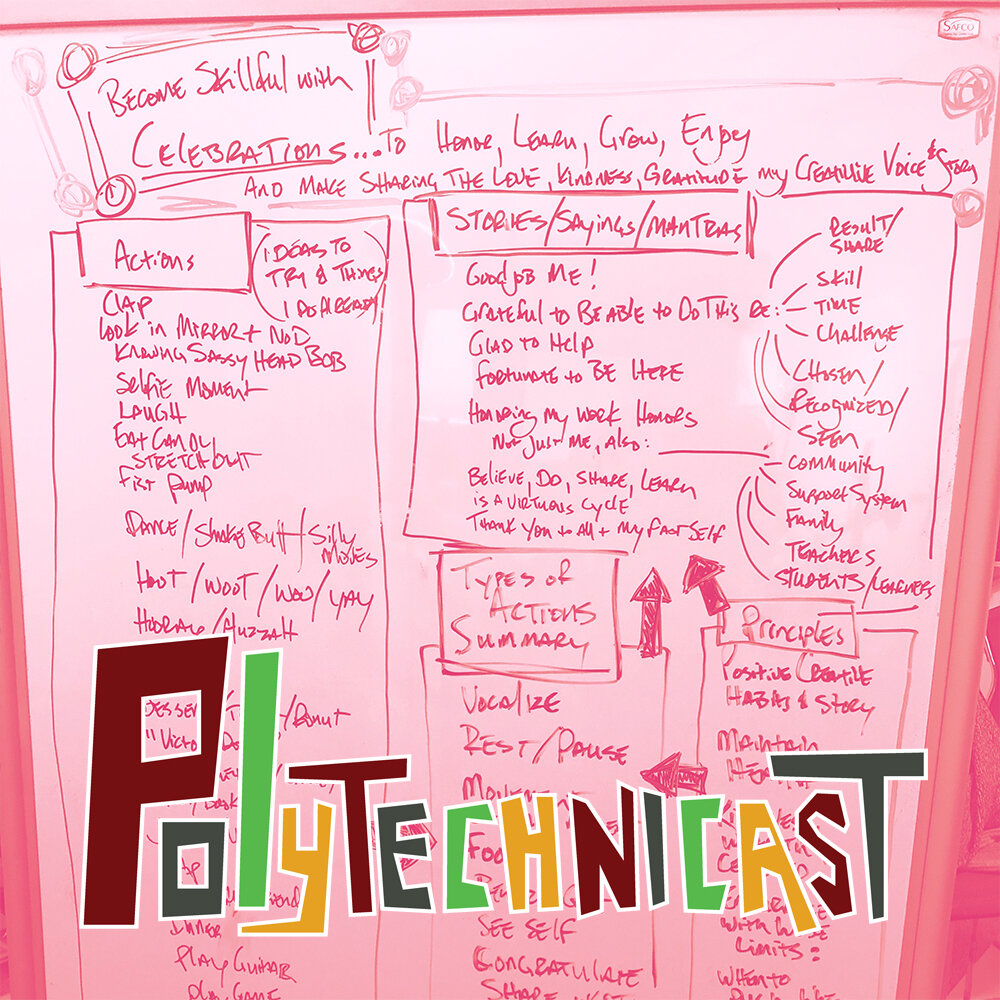 SAFCO
BECOME SKILLFUL WITH
CELEBRATIONS...TO HONOR, LEARN, GROW, ENJOY
AND MAKE SHARING THE LOVE, KINDNESS, GRATITUDE MY CREATIVE VOICE & STORY
Actions
(IDEAS TO
TRY & THINGS
I DO ALREADY)
CLAP
LOOK IN MIRROR + NOD
KNOWING SASSY HEAD BOB
SELFIE MOMENT
LAUGH
EAT CANDY
STRETCH OUT
FIST PUMP
DANCE/SHAKE BUTT/SILLY
MOVES
HOOT/WOOT/WOO/YAY
HOORAY/HUZZAH
/DONUT
PLAY GUITAR
PLAY GAME
STORIES/SAYINGS/MANTRAS
GOOD JOB ME!
GRATEFUL TO BE ABLE TO DO THIS RE:
GLAD TO HELP
FORTUNATE TO BE HERE
HONORING MY WORK HONORS
NOT JUST ME, ALSO:
BELIEVE, DO, SHARE, LEARN
IS A VIRTUOUS CYCLE
THANK YOU TO ALL + MY PAST SELF
RESULT/
SHARE
SKILL
TIME
CHALLENGE
CHOSEN/
RECOGNIZED/
SEEN
COMMUNITY
SUPPORT SYSTEM
FAMILY
TEACHERS
STUDENTS/LEARNERS
TYPES OF
ACTIONS
SUMMARY
VOCALIZE
REST/PAUSE
SEE SELF
CONGRATULATE
PRINCIPLES
POSITIVE CREATIVE
HABITS & STORY
MAINTAIN
LIMITS:
WHEN TO
POLYTECHNICAST